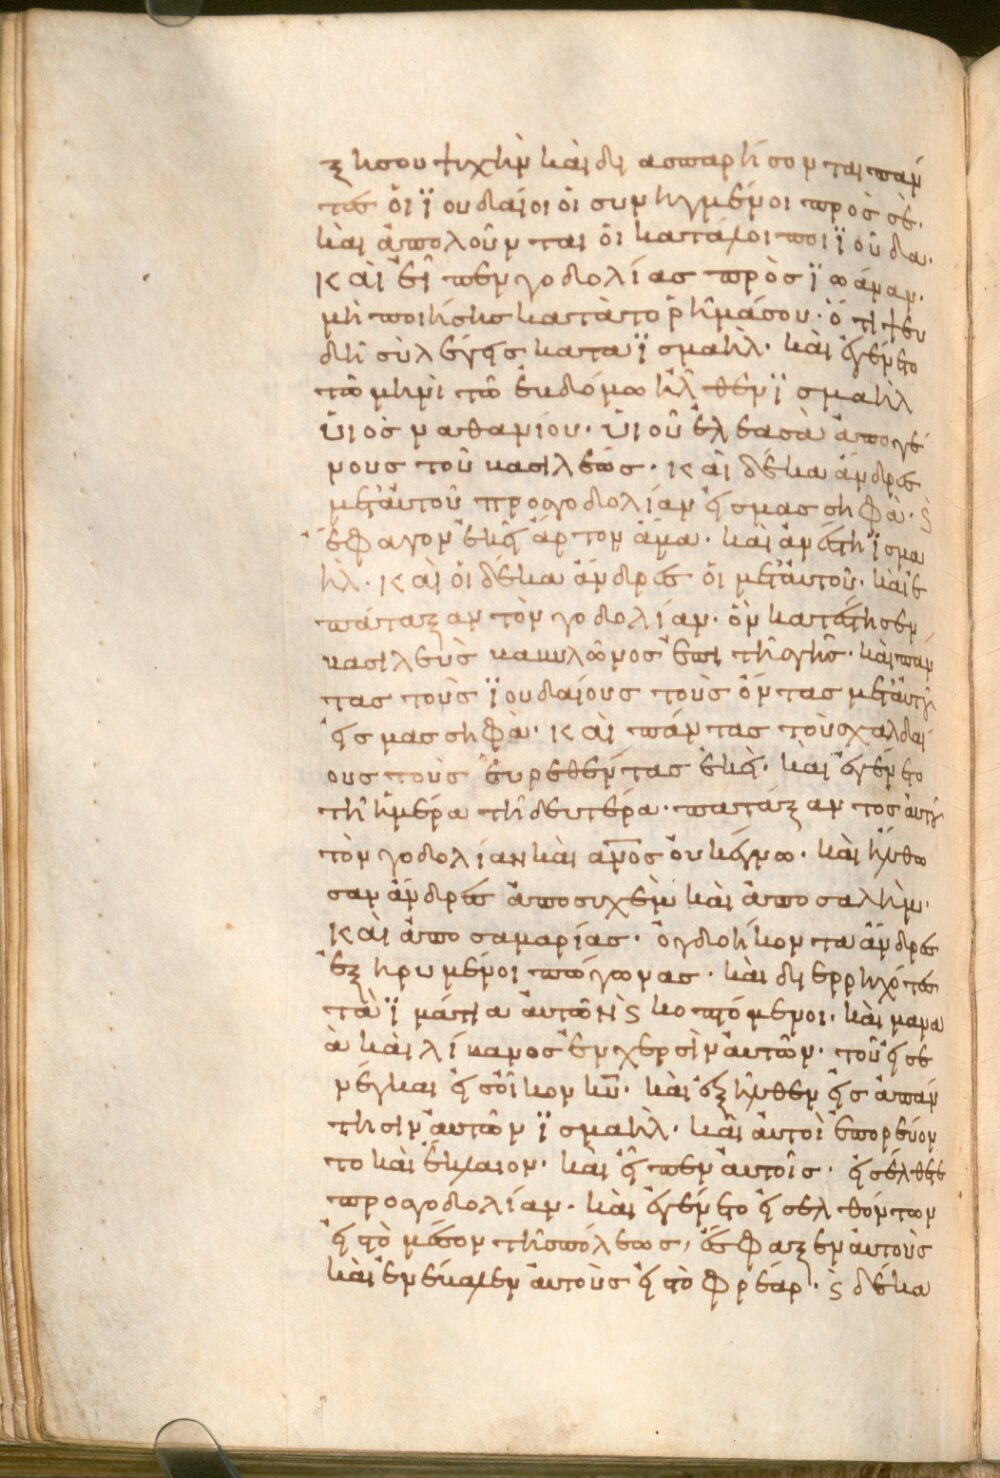 ξησου ψυχὴν καὶ δι ασπαρήσονται πάν
τες ὁι ϊουδαίοι ὁι συνηγμένοι πρὸς σὲ·
καὶ ἀπολοῦνται ὁι κατάλοιποι ϊούδα·
Καὶ εἶπεν γοδολίας πρὸς ϊωάναν·
μὴ ποιήσης κατὰ τὸ ῥῆμά σου· ὅτι ψευ
δῆ σὺ λέγεις κατα ϊσμαήλ· καὶ ἐγένετο
τῶ μηνὶ τῶ ἑβδόμω ἦλθεν ϊσμαὴλ
ὑιὸς ναθανίου· ὑιοῦ ἐλεασὰ ἀπο γέ
νους τοῦ βασιλεως· Καὶ δέκα ἄνδρες
μετ' αὐτοῦ προ γοδολίαν εἰς μασσηφὰ· ϛ
ἔφαγον ἐκεῖ ἄρτον ἅμα· καὶ ἀνέστη ϊσμα
ήλ· Καὶ ὁι δέκα ἄνδρες ὁι μετ' αὐτοῦ· καὶ ἐ
πάταξαν τὸν γοδολίαν· ὃν κατέστησεν
βασιλεὺς βαβυλῶνος ἐπι τῆς γῆς· καὶ πάν
τας τοὺς ϊουδαίους τοὺς ὄντας μετ' αὐτοῦ
εἰς μασσηφὰ· Καὶ πάντας τοὺς χαλδαί
ους τοὺς ἑυρεθέντας ἐκεῖ· καὶ ἐγένετο
τῆ ἡμέρα τῆ δευτέρα· πατάξαντος αὐτοῦ
τὸν γοδολίαν καὶ ανος ὀυκ ἔγνω· καὶ ἤλθω
σαν ἄνδρες ἀπο συχὲμ καὶ ἀπο σαλὴμ·
Καὶ ἀπο σαμαρίας· ὀγδοήκοντα ἄνδρες
ἐξηρυμένοι πώγωνας· καὶ διερρηχότες
τὰ ϊμάτια ἀυτῶν ϛ κοπτόμενοι· καὶ μανα
ὰ καὶ λίβανος ἐν χερσὶν ἀυτῶν· τοῦ εἰσε
νέγκαι εἰς ὀῖκον κυ· καὶ ἐξῆλθεν εἰς ἀπάν
τησιν ἀυτῶν ϊσμαήλ· καὶ ἀυτοὶ ἐπορεύον
το καὶ ἔκλαιον· καὶ εἶπεν ἀυτοῖς· εἰσέλθετε
προ γοδολίαν· καὶ ἐγένετο εἰσελθόντων
εἰς τὸ μέσον τῆς πόλεως, ἔσφαξεν ἀυτοὺς
καὶ ἐνέβαλεν ἀυτοὺς εἰς τὸ φρέαρ· ϛ δέκα